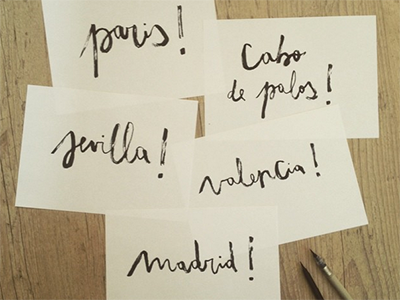 paris!
Cabo
de palos!
sevilla!
valencia!
madrid!